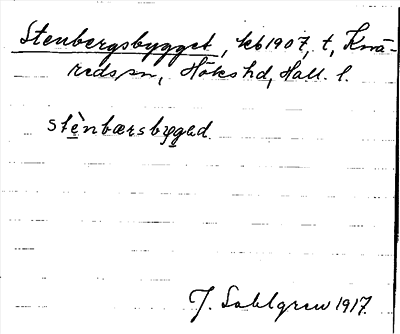 Stenbergsbygget, kb 1907, t, Knä-
reds sn, Höks hd, Hall. l.
stènbærsbyged.
J. Sahlgren 1917.